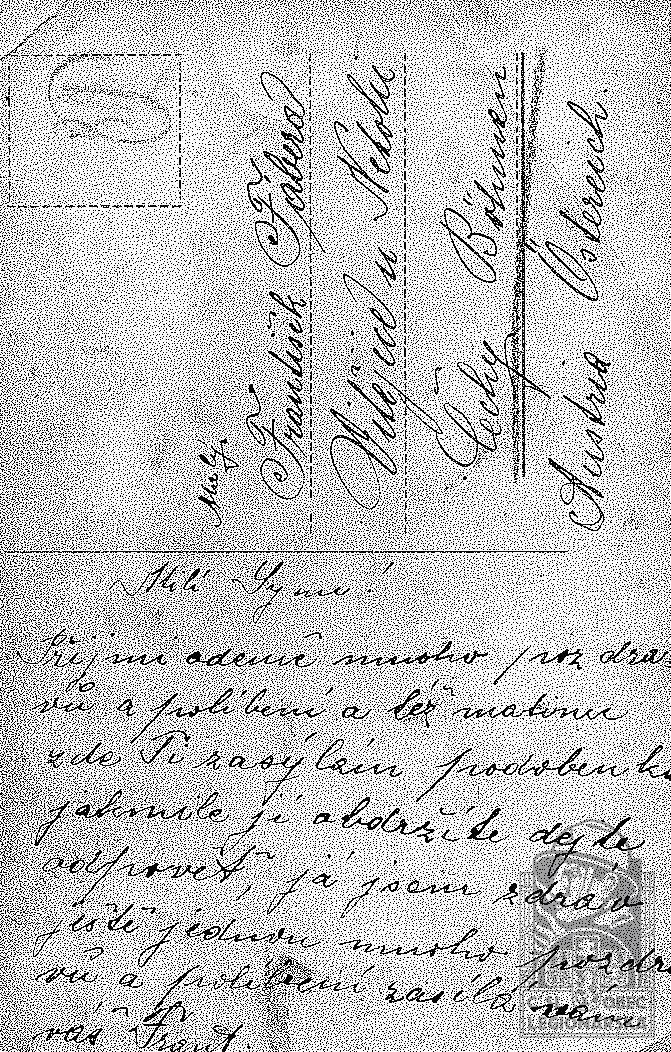 František Fabera
Vitějice u Nekoře
Čechy Böhmen
Austria Östereich.
Milí Synu!
Přijmi odemě mnoho pozdra
vů a políbení a též matinec
zde Ti zasýlám podobenku
jakmile ji obdržíte dejte
odpověť, já jsem zdráv
ještě jednou mnoho pozdra
vů a políbení zasílá vám
váš Frant.